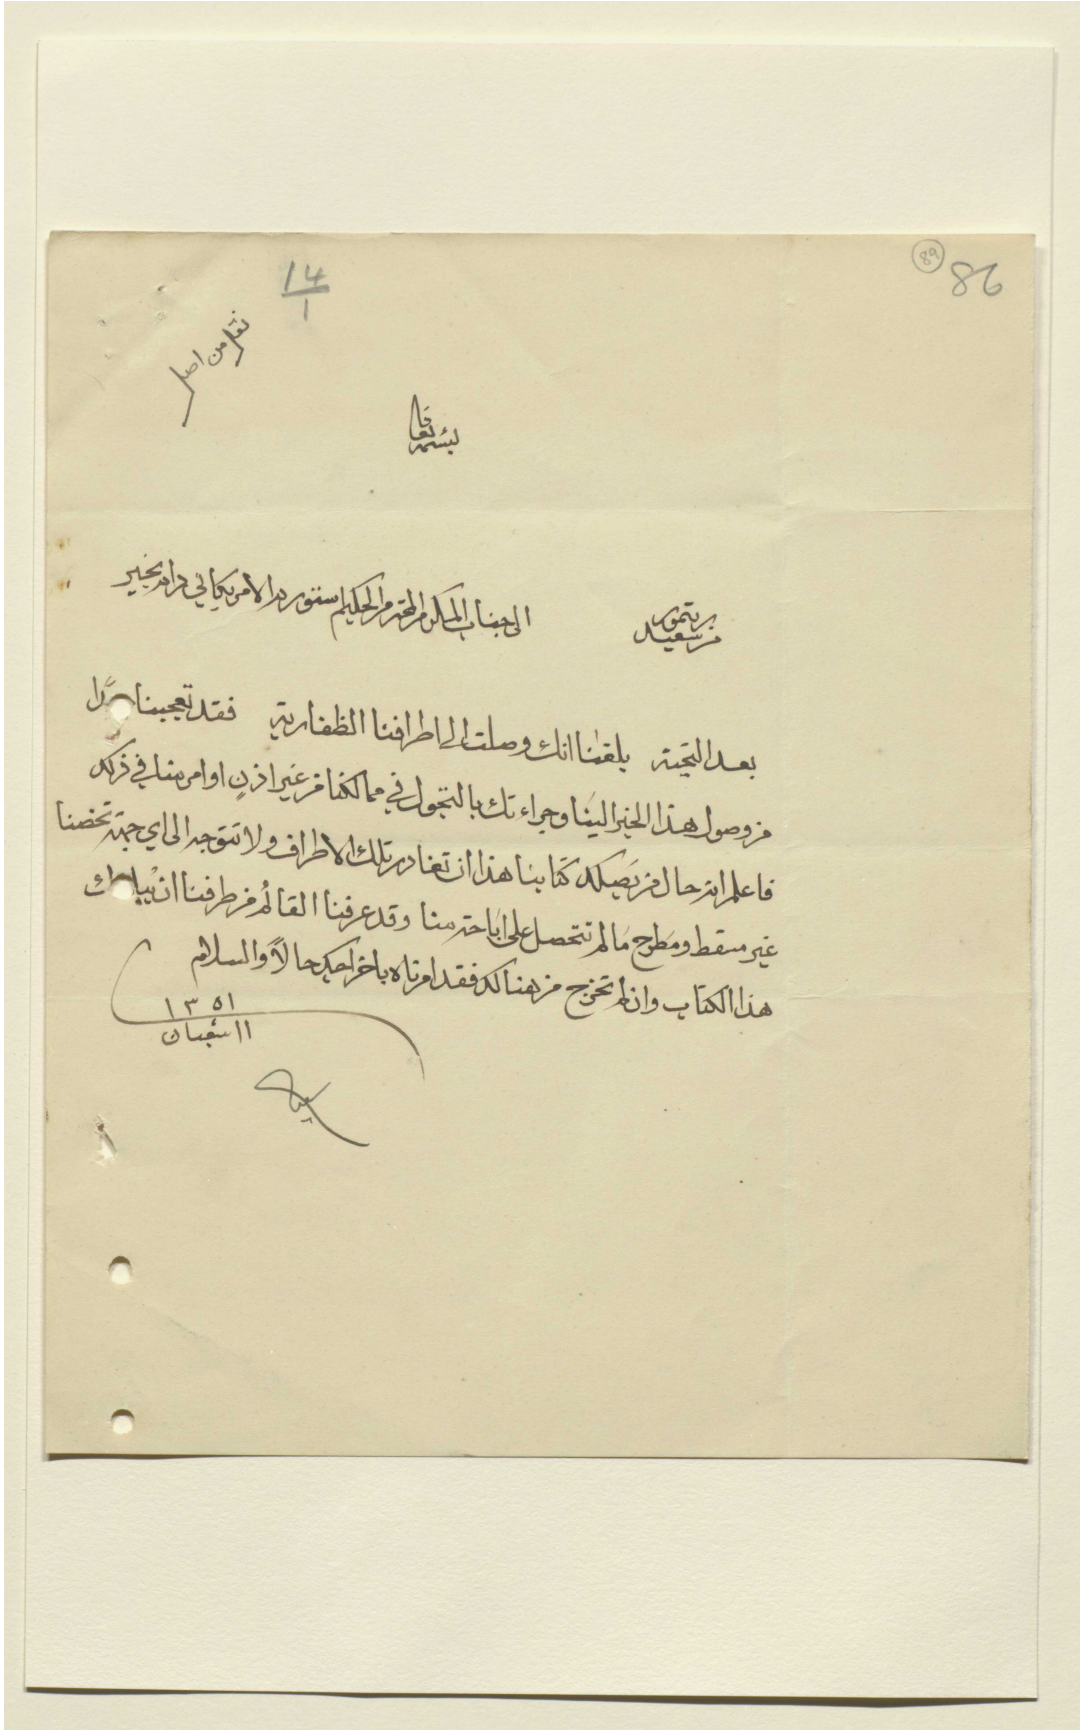 89
86
14
1
نقل من اصل
بسمه تعالى
من سعيد بن تيمور
الى جناب المكرم المحترم الحكيم ستورم الامريكاني دام بخير
بعد التحية بلغنا انك وصلت الى اطرافنا الظفارية فقد تعجبنا
من وصول هذا الخبر الينا وجراءتك بالتجول في ممالكنا من غير اذن او امر منا في ذلك
فاعلم انه حال من يصلك كتابنا هذا ان تغادر تلك الاطراف ولا تتوجه الى اي جهة تخصنا
غير مسقط ومطرح ما لم تتحصل على اباحة منا وقد عرفنا القائم من طرفنا ان
هذا الكتاب وان لم تخرج من هنالك فقد امرناه باخراجك حالاً والسلام
١٣٥١
١١ شعبان
سعيد